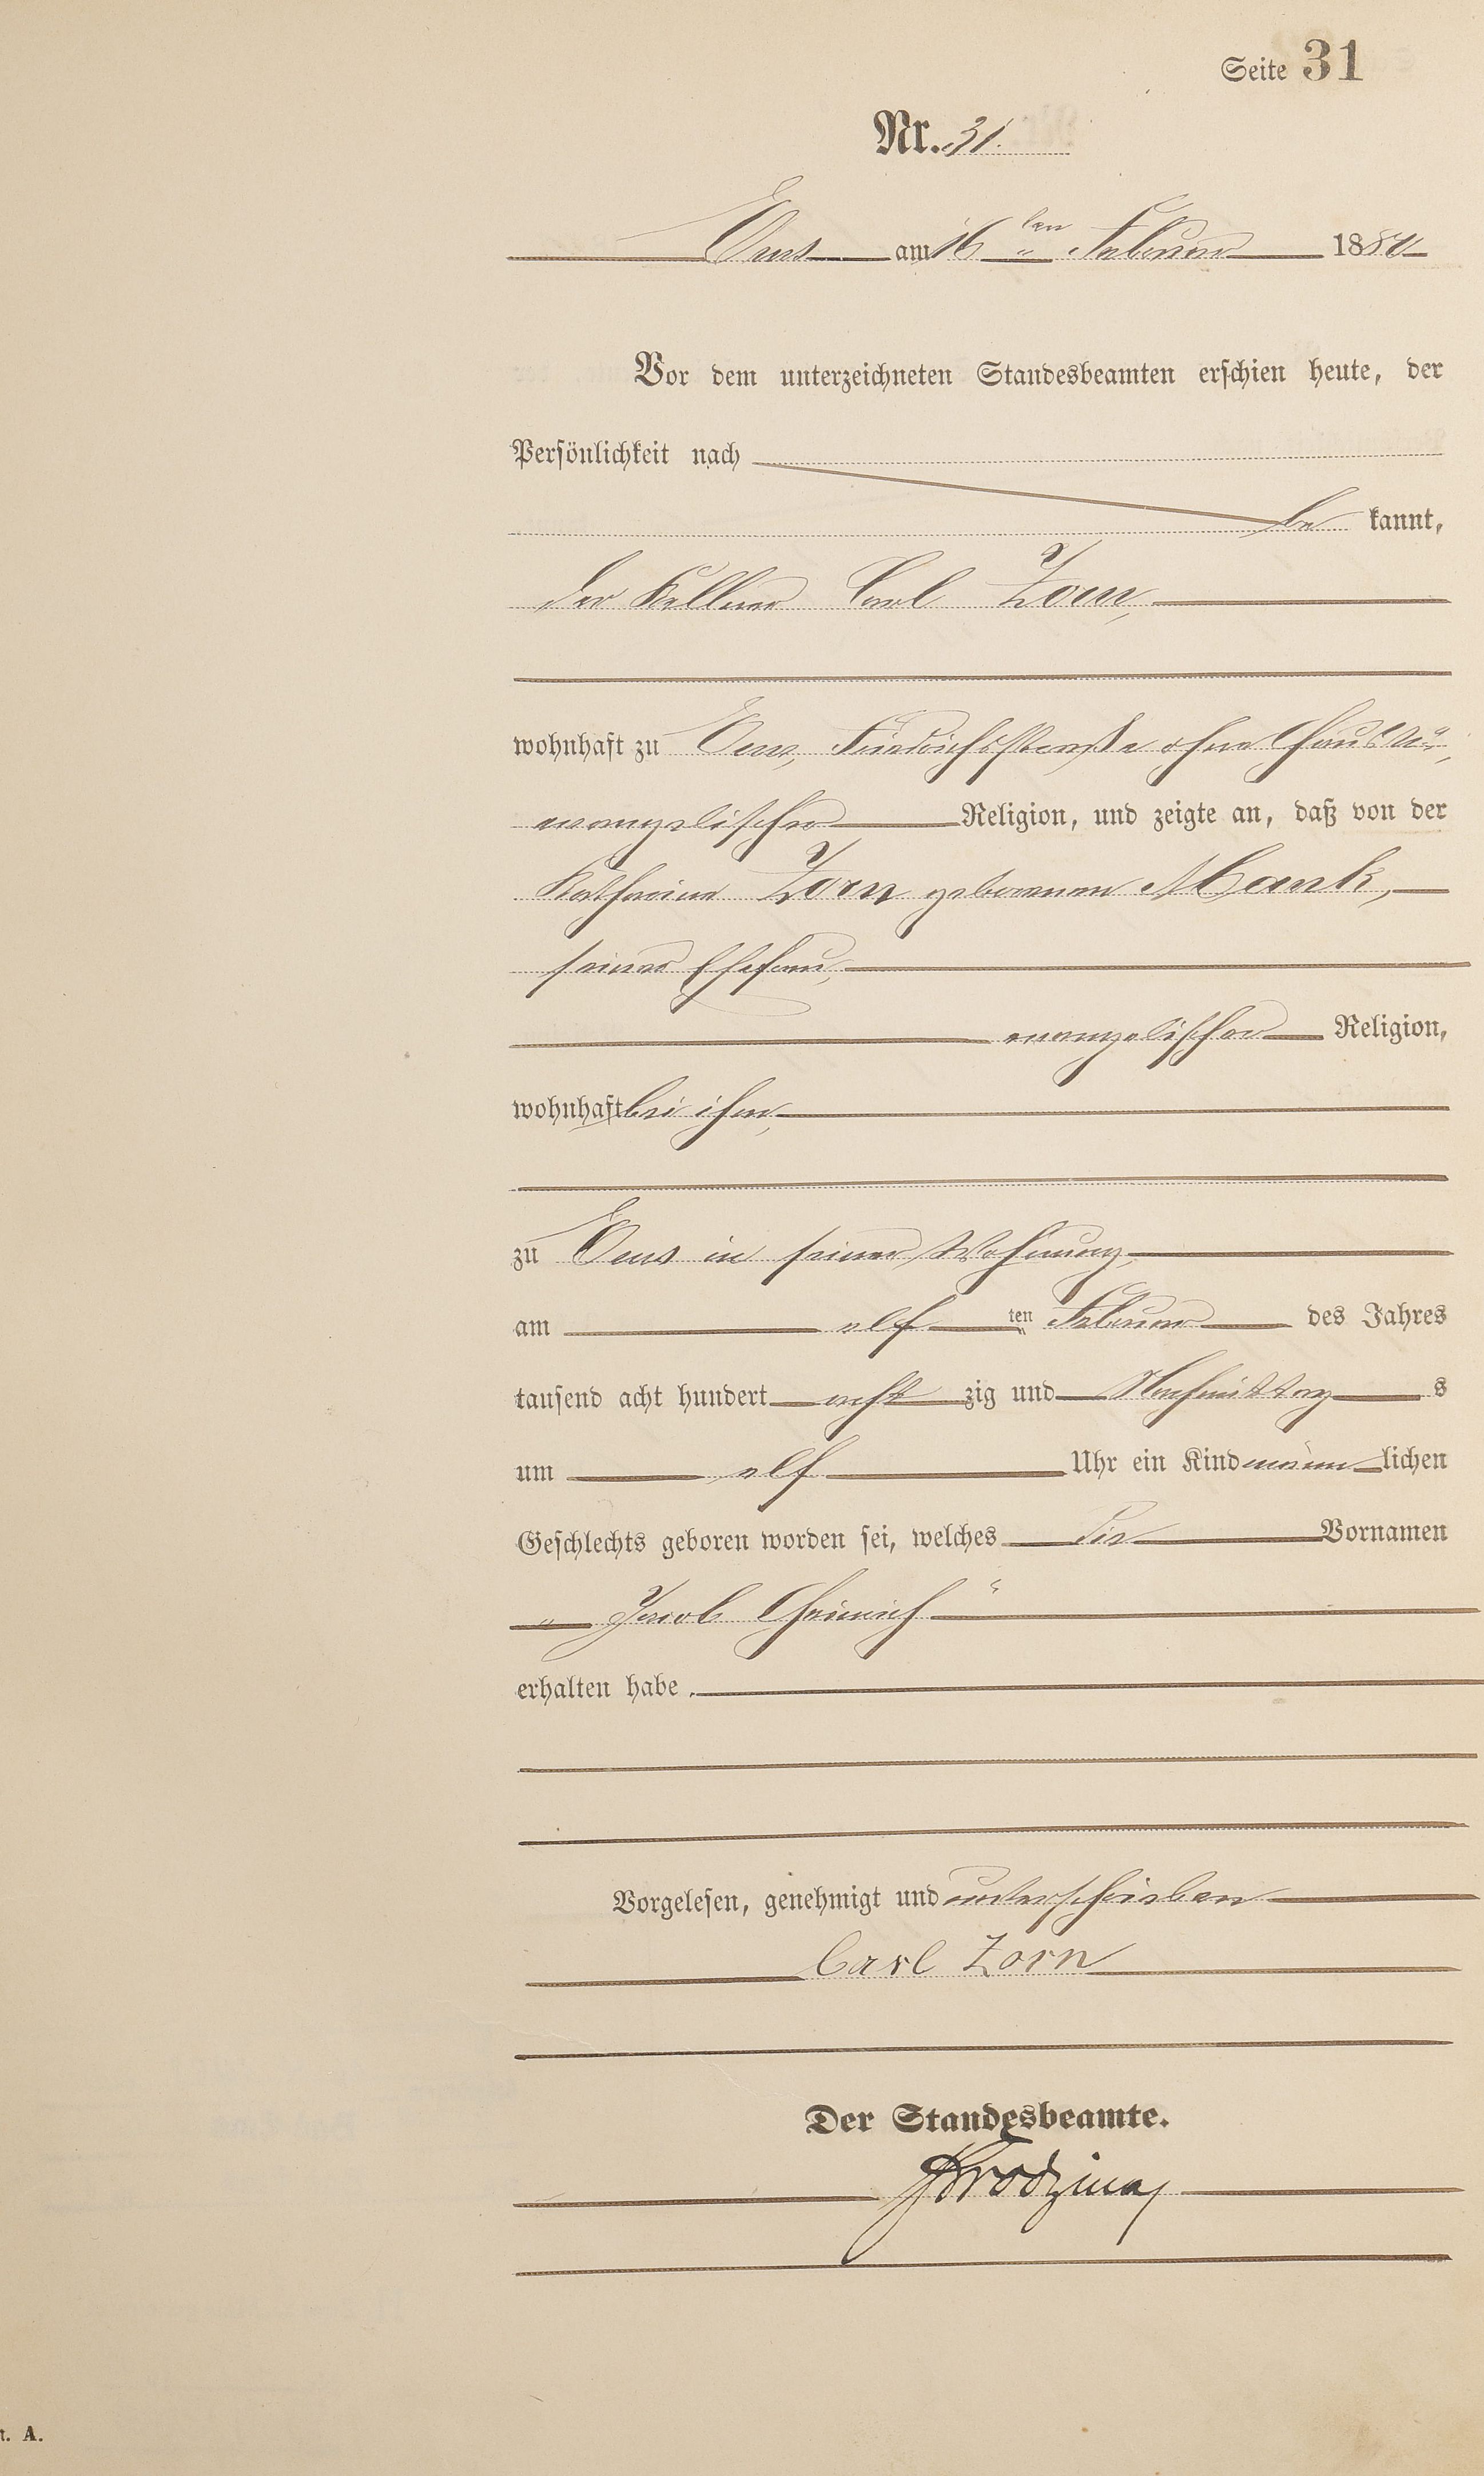 Seite 31
Nr. 31.
Ems am 16 ten Februar 1880
Vor dem unterzeichneten Standesbeamten erschien heute, der
Persönlichkeit nach
be kannt,
der Kellner Carl Zorn,
wohnhaft zu Ems, Friedrichsstraße ohne Haus №,
evangelischer Religion, und zeigte an, daß von der
Katharina Zorn geborenen Mank,
seiner Ehefrau,
evangelischer Religion,
wohnhaft bei ihm,
zu Ems in seiner Wohnung,
am elf ten Februar des Jahres
tausend acht hundert acht zig und Nachmittag s
um elf Uhr ein Kind männ lichen
Geschlechts geboren worden sei, welches die Vornamen
„ Jacob Heinrich “
erhalten habe.
Vorgelesen, genehmigt und unterschrieben
Carl Zorn
Der Standesbeamte.
t. A.